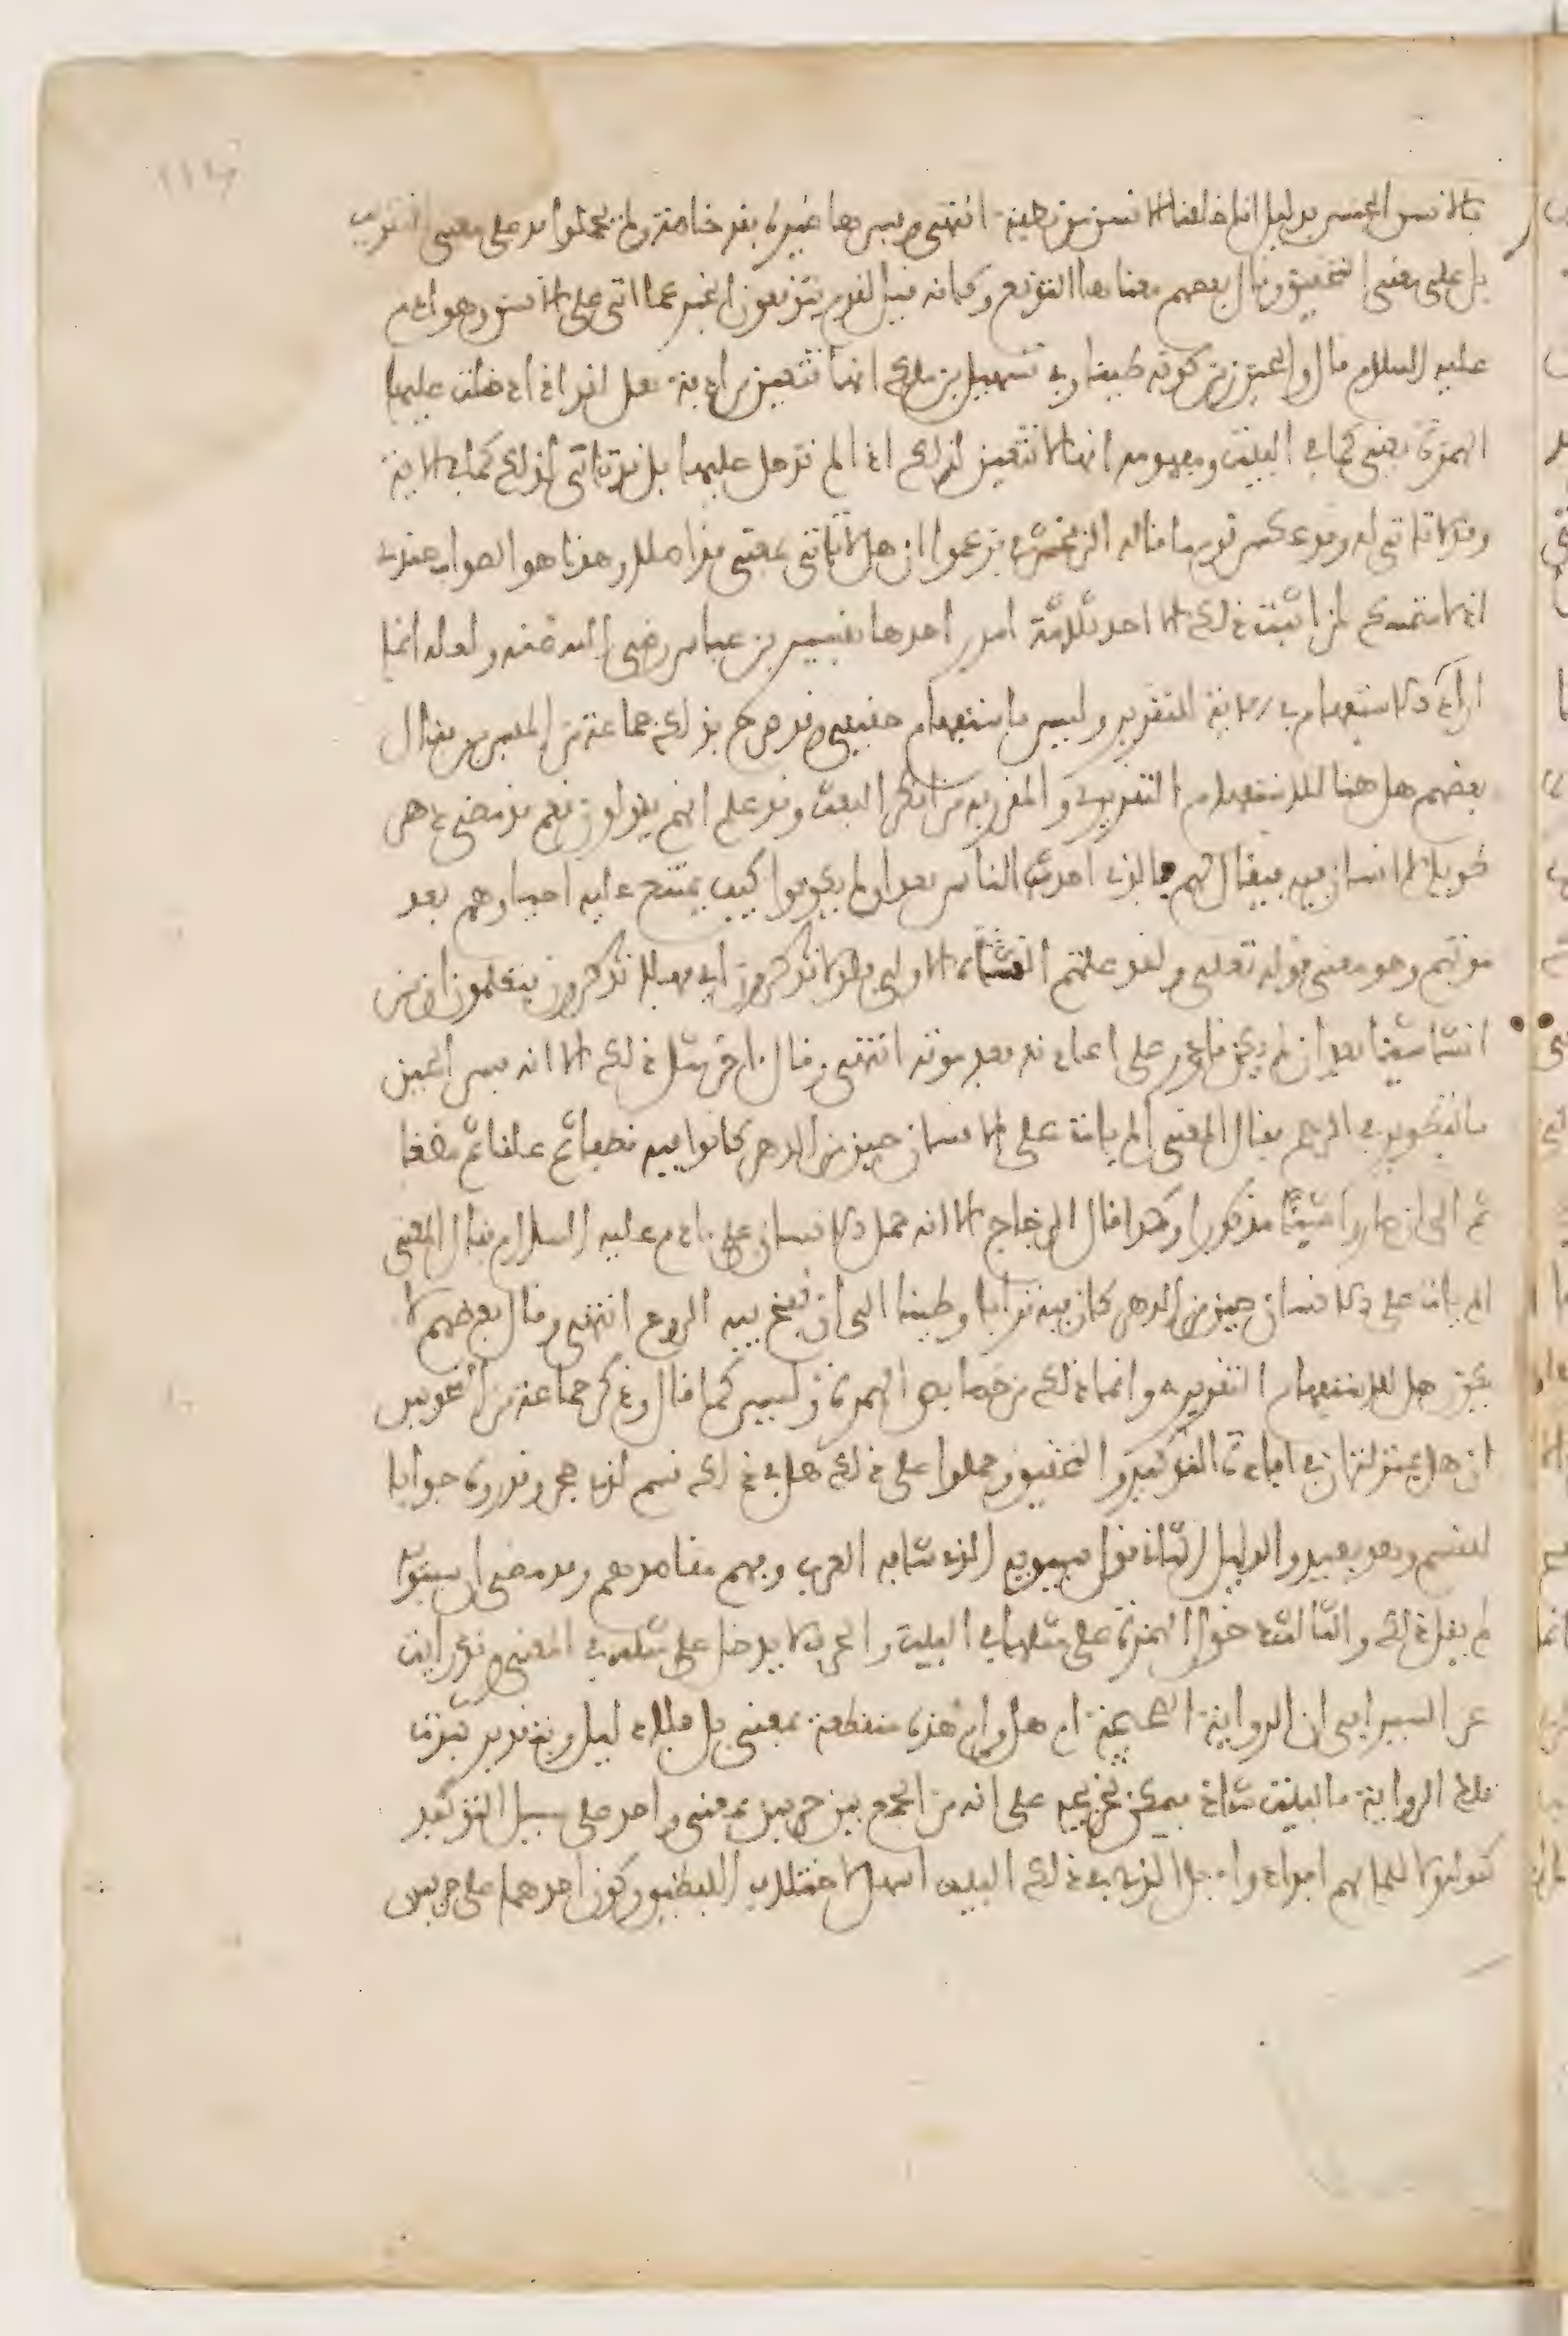 بالانسن الجنس بدليل انا خلقنا الانسن من نطفة انتهى وفسرها غيره بقد خاصة ولم يحملوا قد على معنى التقريب
بل على معنى التحقيق وقال بعضهم معناها التوقع وكانه قيل لقوم يتوقعون الخبر عما اتى على الانسن وهو ادم
عليه السلام قال والحين زمن كونه طينا وفي تسهيل بن ملك انها تتعين مرادفة لقد اذا دخلت عليها
الهمزة يعني كما في البيت ومفهومه انها لا تتعين لذلك اذا لم تدخل عليها بل قد تاتي لذلك كما في الاية
وقد لا تاتي له وقد عكس قوم ما قاله الزمخشري فزعموا ان هل لا تاتي بمعنى قد اصلا وهذا هو الصواب عندي
اذ لا متمسك لمن اثبت ذلك الا احد ثلاثة امور احدها تفسير بن عباس رضي الله عنه ولعله انما
اراد ان الاستفهام في الاية للتقرير وليس باستفهام حقيقي وقد صرح بذلك جماعة من المفسرين فقال
بعضهم هل هنا للاستفهام التقريري والمقرر به من انكر البعث وقد علم انهم يقولون نعم قد مضى دهر
طويل لا انسان فيه فيقال لهم فالذي احدث الناس بعد ان لم يكونوا كيف يمتنع عليه احياوهم بعد
موتهم وهو معنى قوله تعلى ولقد علمتم النشاة الاولى فلولا تذكرون اي فهلا تذكرون فتعلمون ان من
انشا شيئا بعد ان لم يكن قادر على اعادته بعد موته انتهى وقال اخر مثل ذلك الا انه فسر الحين
بالتصوير في الرحم فقال المعنى الم يات على الانسان حين من الدهر كانوا فيه نطفا ثم علقا ثم مضغا
ثم الى ان صاروا شيئا مذكورا وكذا قال الزجاج الا انه حمل الانسان على ادم عليه السلام فقال المعنى
الم يات على الانسان حين من الدهر كان فيه ترابا وطينا الى ان نفخ فيه الروح انتهى وقال بعضهم لا
تكون هل للاستفهام التقريري وانما ذلك من خصايص الهمزة وليس كما قال وذكر جماعة من النحويين
ان هل بمنزلة ان في افادة التوكيد والتحقيق وحملوا على ذلك هل في ذلك قسم لذي حجر وقدروه جوابا
للقسم وهو بعيد والدليل الثاني قول سيبويه الذي شافه العرب وفهم مقاصدهم وقد مضى ان سيبويه
لم يقل ذلك والثالث دخول الهمزة عليها في البيت والحرف لا يدخل على مثله في المعنى وقد رايت
عن السيرافي ان الرواية الصحيحة ام هل وام هذه منقطعة بمعنى بل فلا دليل وبتقدير ثبوت
تلك الرواية فالبيت شاذ فيمكن تخريجه على انه من الجمع بين حرفين بمعنى واحد على سبيل التوكيد
كقوله ولا للما بهم ابدا دواء بل الذي في ذلك البيت اسهل لاختلاف اللفظين وكون احدهما على حرفين